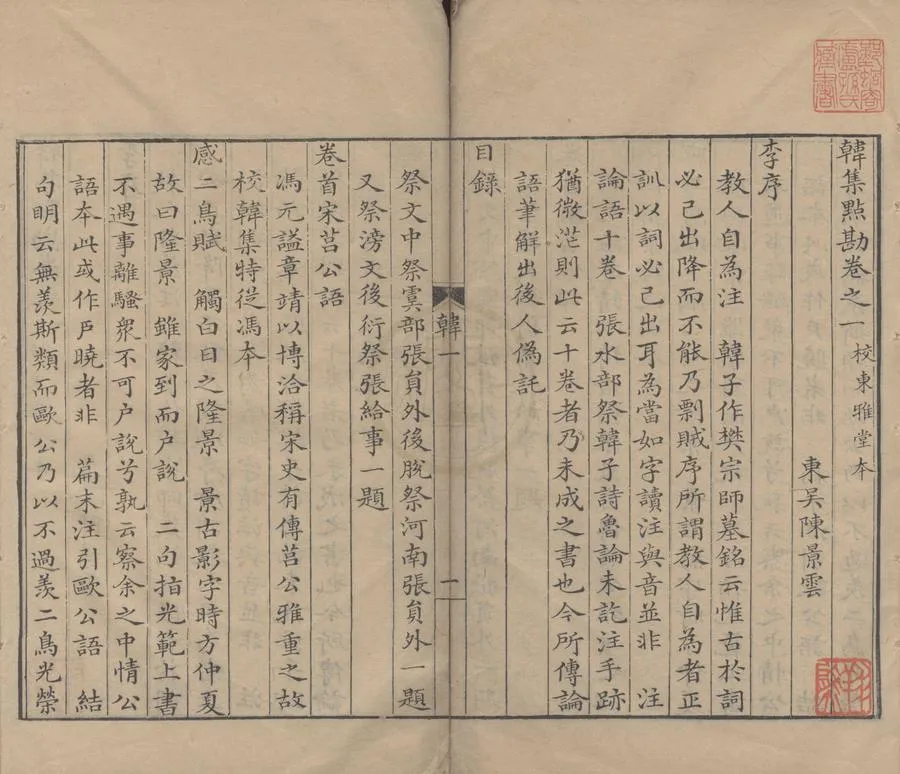 韓集點勘卷之一　校東雅堂本
東吳陳景雲
李序
教人自為注　韓子作樊宗師墓銘云惟古於詞
必己出降而不能乃剽賊序所謂教人自為者正
訓以詞必己出耳為當如字讀注與音並非　注
論語十卷　張水部祭韓子詩魯論未訖注手跡
猶微茫則此云十卷者乃未成之書也今所傳論
語筆解出後人偽託
目錄
祭文中祭虞部張員外後脫祭河南張員外一題
又祭滂文後衍祭張給事一題
卷首宋莒公語
馮元謚章靖以博洽稱宋史有傳莒公雅重之故
校韓集特從馮本
感二鳥賦　觸白日之隆景　景古影字時方仲夏
故曰隆景　雖家到而户說　二句指光範上書
不遇事離騷衆不可户說兮孰云察余之中情公
語本此或作戶曉者非　篇末注引歐公語　結
句明云無羨斯類而歐公乃以不過羨二鳥光榮
韓一
一